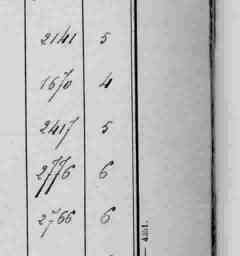 2141 5
1670 4
2417 5
2776 6
2766 6